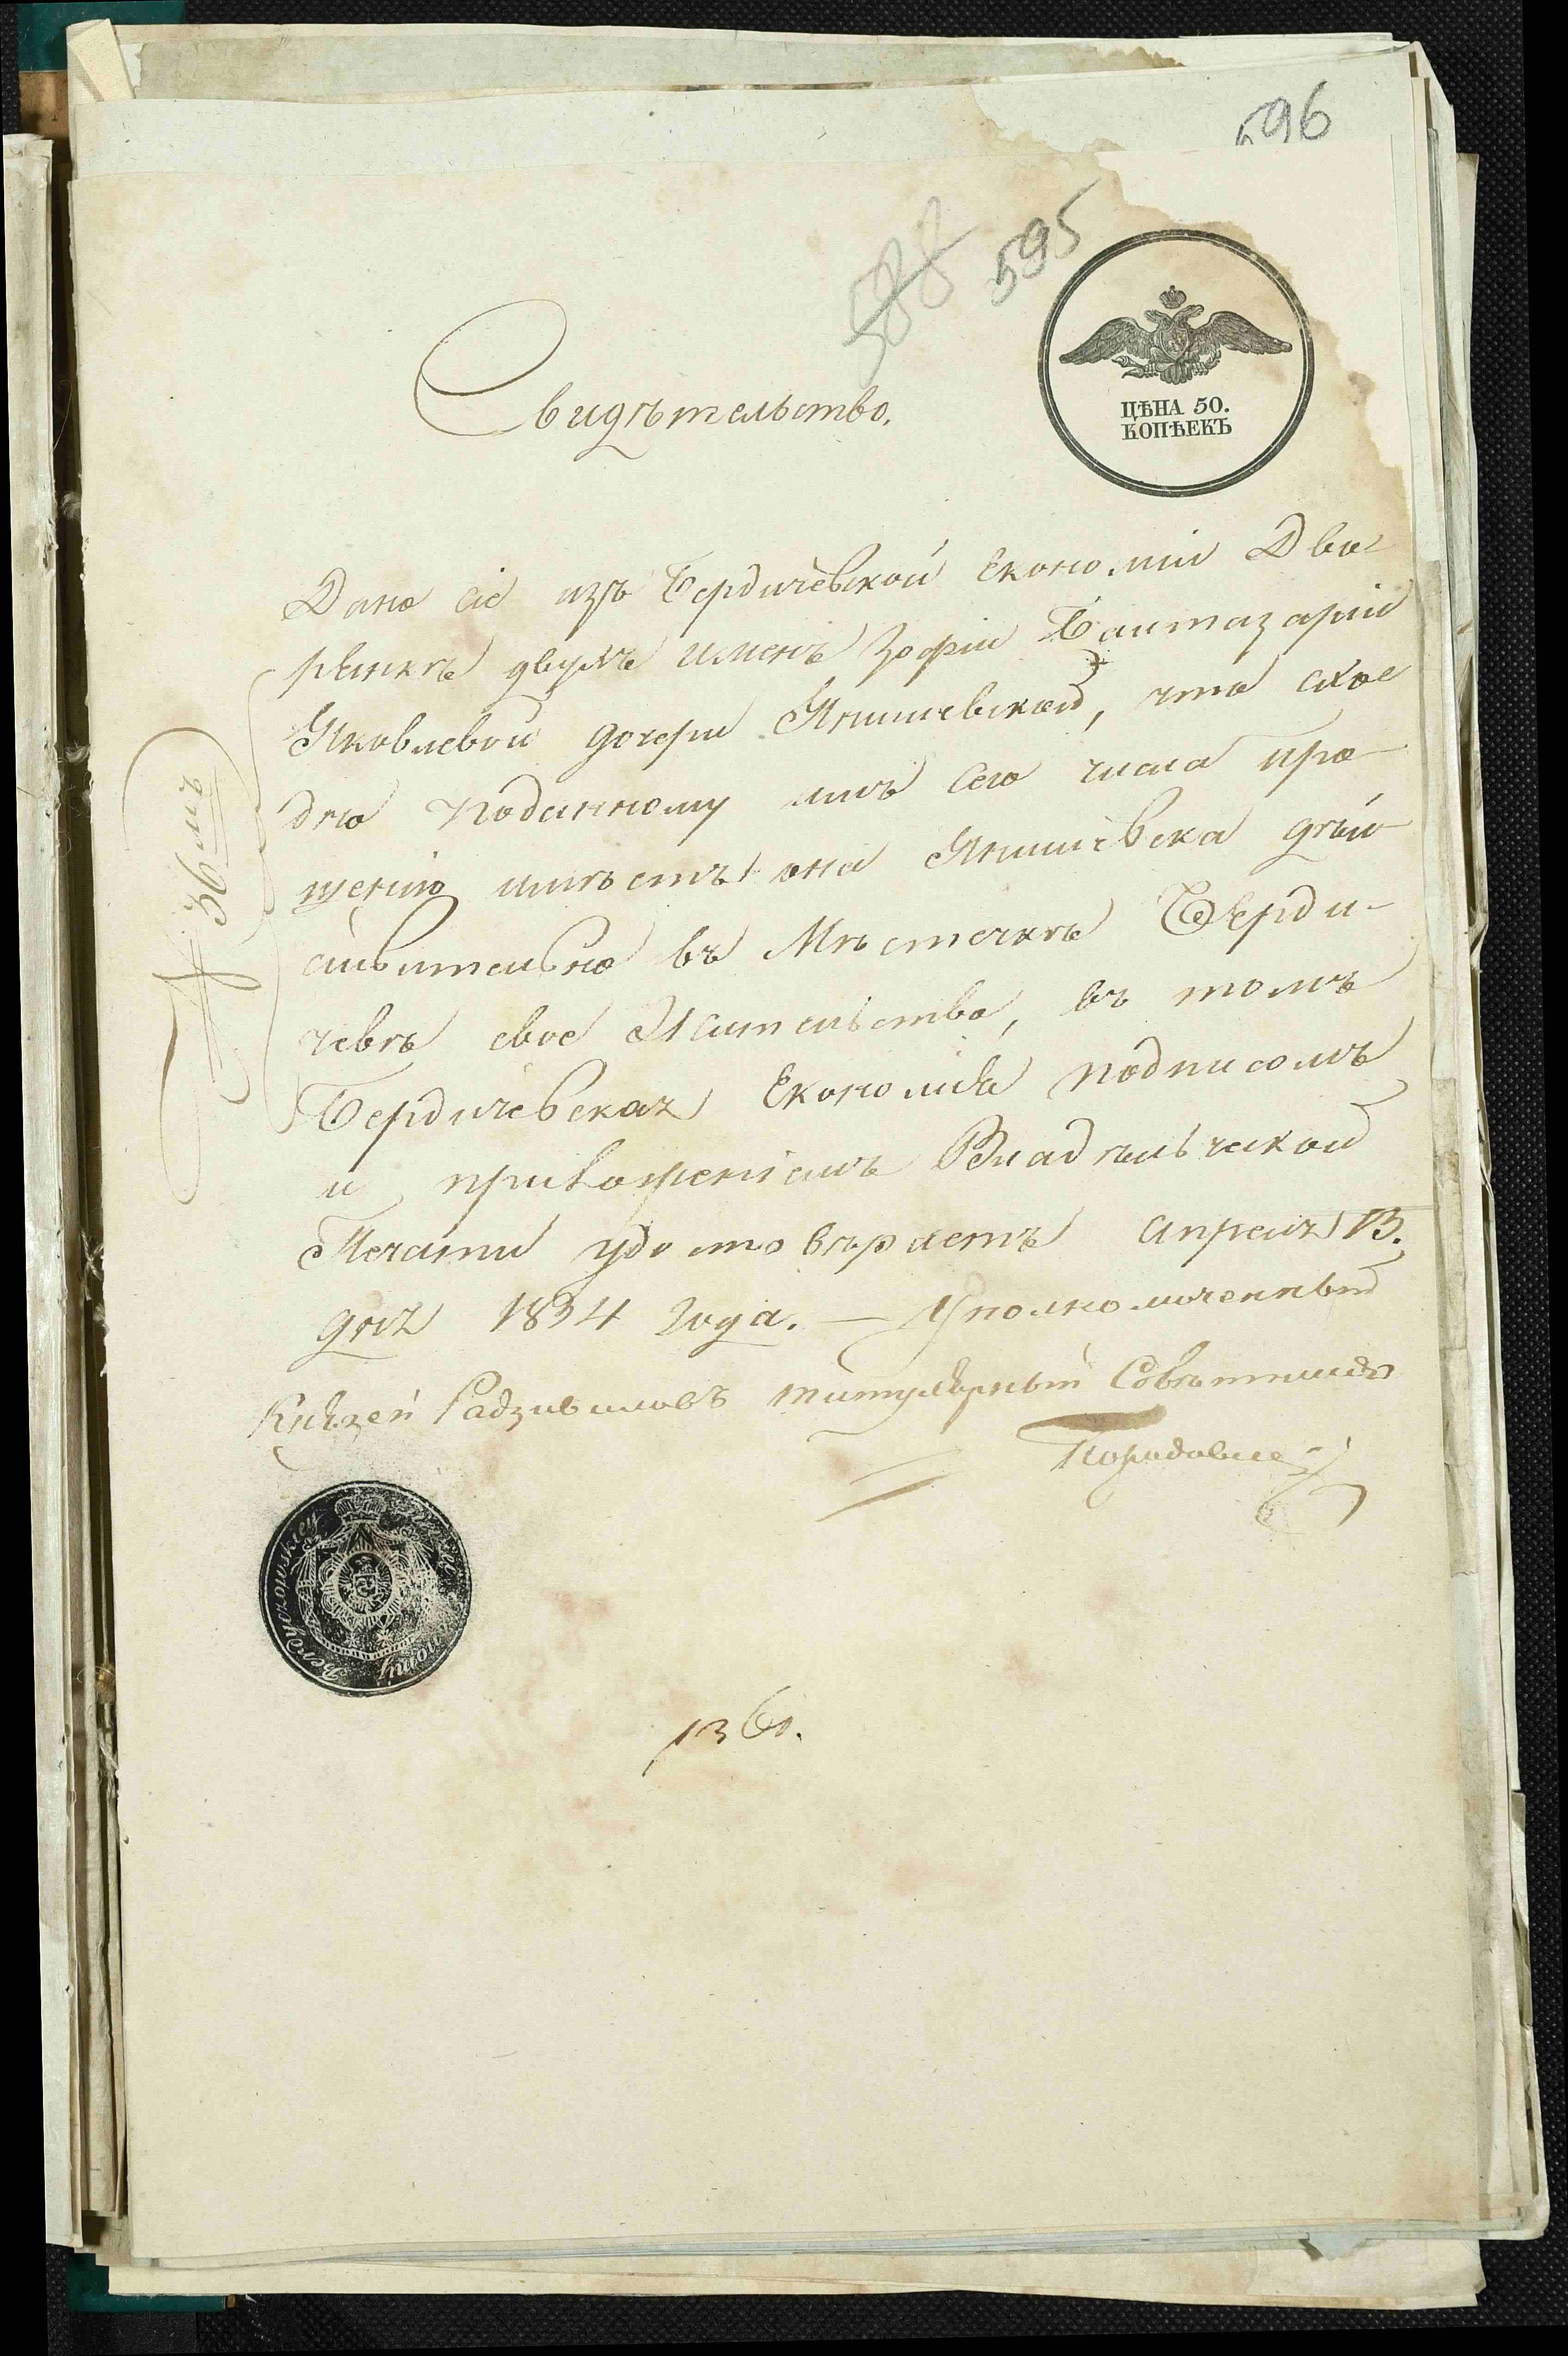 596
588 595
ЦѢНА 50.
КОПѢЕКЪ
Свидѣтельство.
Дано сіе изъ Бердичевской Економіи Дво-
рянкѣ двумъ именъ Зофіи Балтазаріи
Яковлевой дочери Янишевской, что
дню поданному имъ сего числа про-
шенію имѣетъ она Янишевска дѣй-
ствительно въ Мѣстечкѣ Берди-
чевѣ свое Жительство, въ томъ
Бердичевская Економія подписомъ
и приложеніемъ Владѣльческой
Печати удостовѣряетъ Апреля 13.
дня 1834 года. — Уполномоченный
Князей Радзивиловъ титулярный Совѣтникъ
№ 36мъ
Berdyczowskiey
1360.